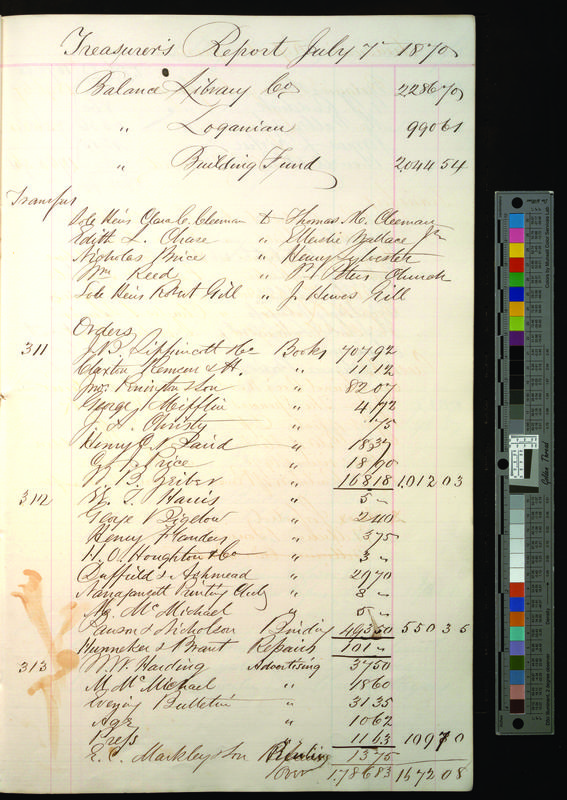 Treasurer's Report July 7 1870
Balance Library Co 2286 70
" Loganian 990 61
" Building Fund 2044 54
Transfers
Sole Heirs Clara C. Cleeman to Thomas M. Cleeman
Edith L. Chase " Ellerslie Wallace Jr
Nicholas Brice " Henry Sylvester
Wm Reed " St Peters Church
Sole Heirs Robert Gill " J. Hewes Gill
Orders
311 J. B. Lippincott & Co Books 707 92
Claxton Remsen & H. " 11 12
Jno. Penington & Son " 82 07
George Mifflin " 4 72
J. H. Christy " 75
Henry Baird " 18 37
Price " 18 90
Zeiber " 168 18 1,012 03
312 T. Harris " 5 "
George Bigelow " 2 40
Henry Flanders " 3 75
H. O. Houghton & Co " 3 "
Duffield & Ashmead " 29 70
Narragansett Printing Club " 8 "
McMichael " 5 "
Pawson & Nicholson Binding 493 50 550 35
Hunneker & Brant Repairs 101 "
313 W. W. Harding Advertising 37 50
M. McMichael " 18 60
Evening Bulletin " 31 35
Age " 10 62
Press " 11 63 109 70
E. C. Markley & Son 13 75
over 1786 83 1672 08